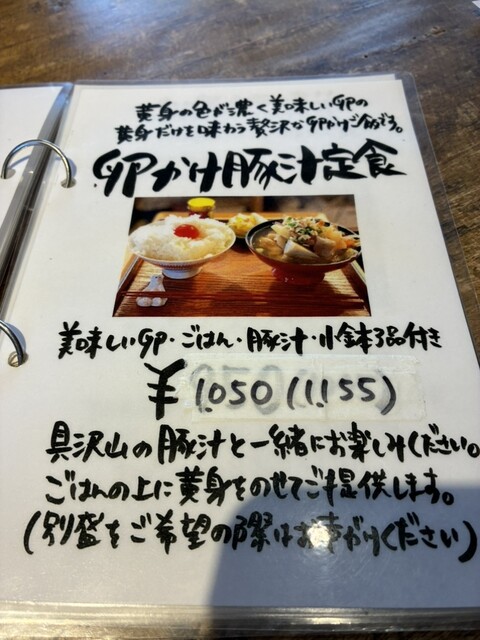 黄身の色が濃く美味しい卵の
黄身だけを味わう贅沢な卵かけご飯です。
卵かけ豚汁定食
美味しい卵・ごはん・豚汁・小鉢3品付き
¥1,050(1,155)
具沢山の豚汁と一緒にお楽しみください。
ごはんの上に黄身をのせてご提供します。
(別盛をご希望の際はお声がけください)